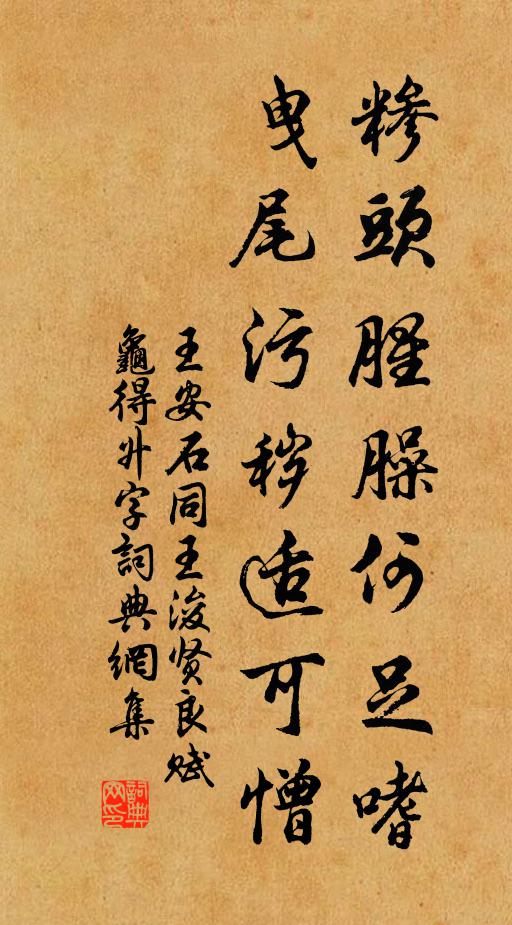 糝頭腥臊何足嗜
曳尾污穢适可憎
王安石同王浚贤良赋
龜得升字詞典網集
詞典网印